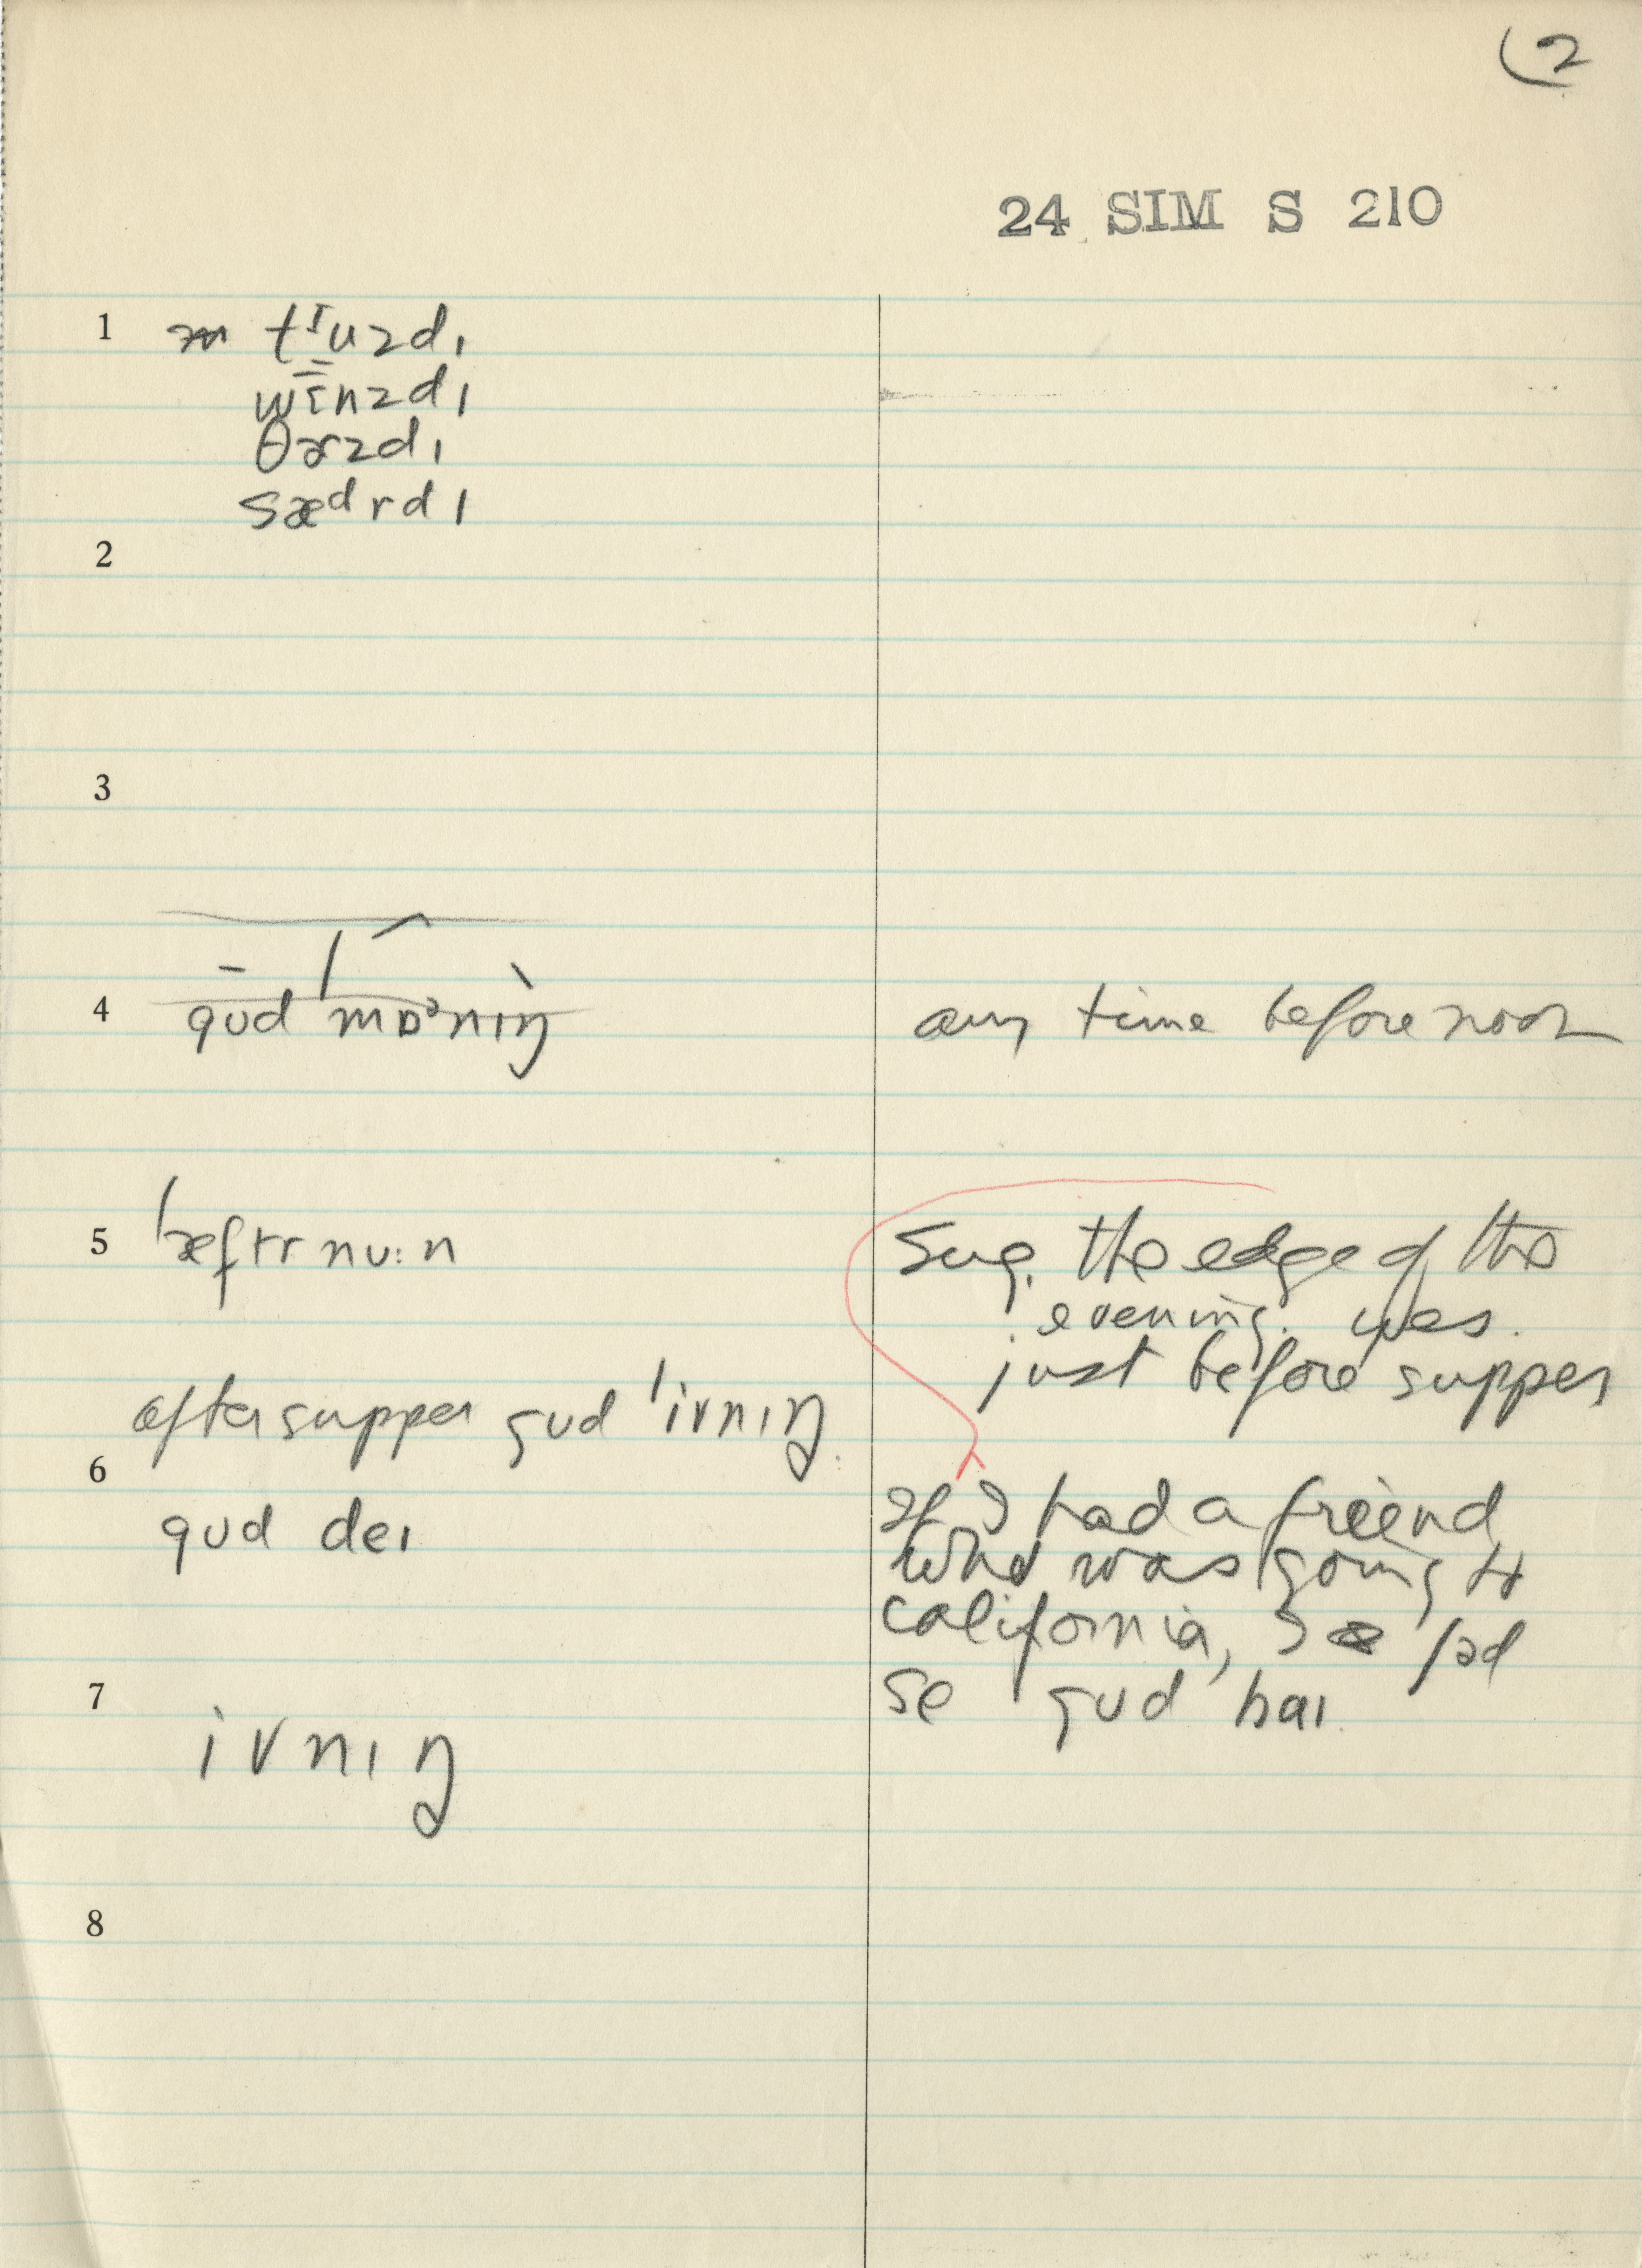 2
24 SIM S 210
1 tᴵuzdı
wɪnzdı
θɚzdı
sædrdı
2
3
4 gʊd mɒɚnıŋ any time before noon
5 ˈæftrnu:n Sug. the edge of the
evening. was.
just before supper
after supper gʊd ˈivnıŋ
6
gʊd deı If I had a friend
who was going to
california, I ʃəd
se gʊd baı
7
ivnıŋ
8